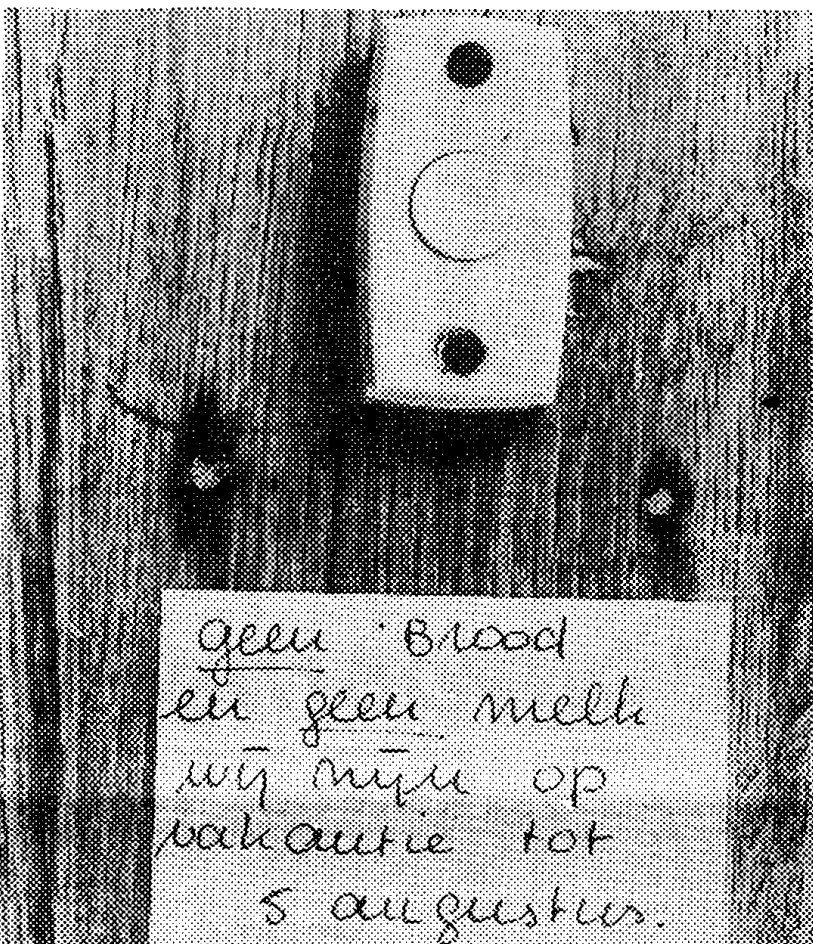 geen Brood
en geen melk
wij zijn op
vakantie tot
5 augustus.